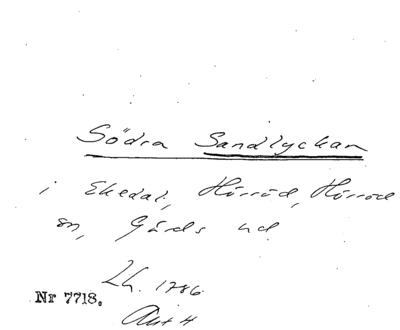 Södra Sandlyckan
i Ekedal, Hörröd, Hörröd
sn, Gärds hd
Lh. 1786
Nr 7718.
Akt 4